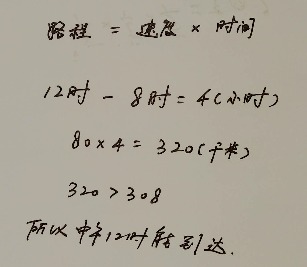 路程 = 速度 × 时间
12时 - 8时 = 4(小时)
80×4 = 320(千米)
320 > 308
所以中午12时能到达.